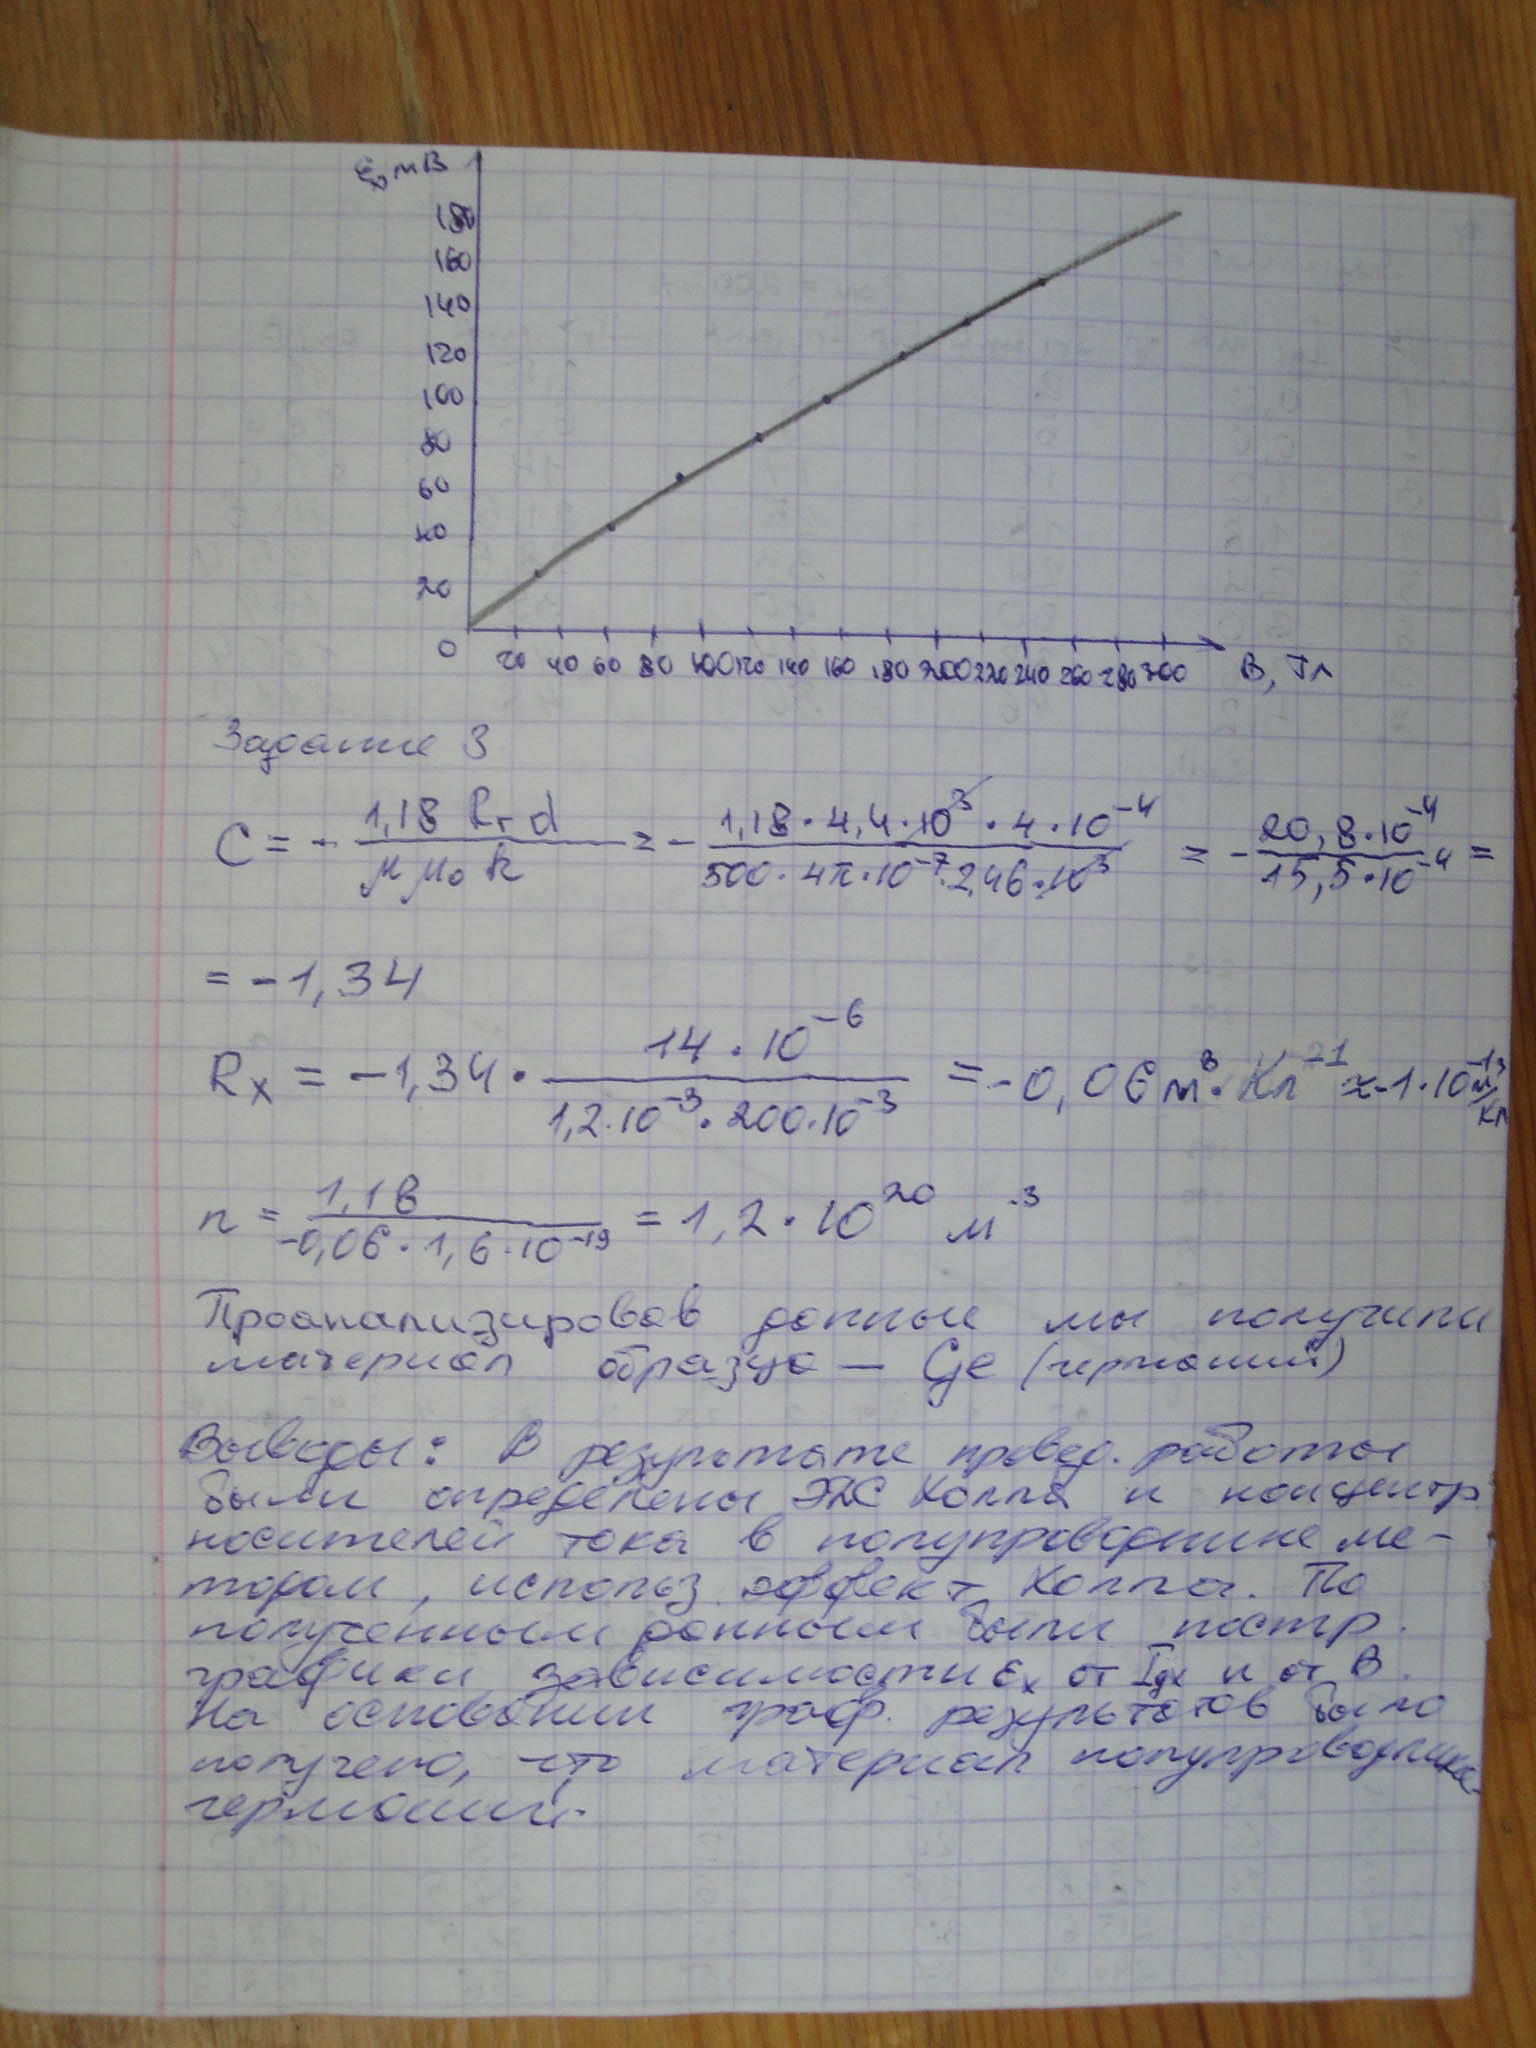 εx, мВ
180
160
140
120
100
80
60
40
20
0
20 40 60 80 100 120 140 160 180 200 220 240 260 280 300 В, Тл
Задание 3
C = - 1,18 Rг d / μ μ0 k = - 1,18 · 4,4 · 10^3 · 4 · 10^-4 / 500 · 4π · 10^-7 · 2,46 · 10^3 = - 20,8 · 10^-4 / 15,5 · 10^-4 =
= - 1,34
Rx = -1,34 · 14 · 10^-6 / 1,2 · 10^-3 · 200 · 10^-3 = -0,06 м^3 · Кл^-1 ≈ -1 · 10^-1 м^3/Кл
n = 1,18 / -0,06 · 1,6 · 10^-19 = 1,2 · 10^20 м^-3
Проанализировав данные мы получили
материал образца — Ge (германий)
Выводы: В результате провед. работы
были определены ЭДС Холла и концентр
носителей тока в полупроводнике ме-
тодом, использ. эффект Холла. По
полученным данным были постр.
графики зависимости εx от Iдх и от В.
На основании граф. результатов было
получено, что материал полупроводника-
германий.